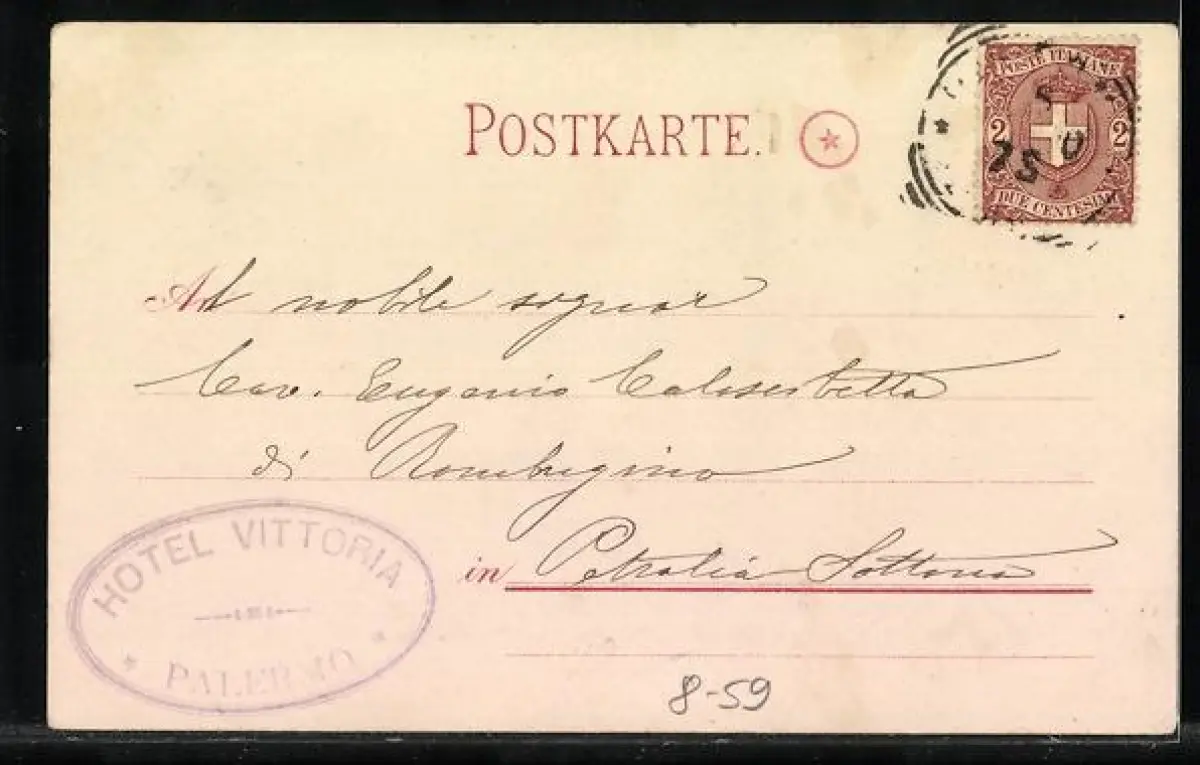 POSTKARTE.
POSTE ITALIANE
2 2
DUE CENTESIMI
Al nobile signor
Cav. Eugenio
di
in Petralia Sottana
HOTEL VITTORIA
PALERMO
8-59